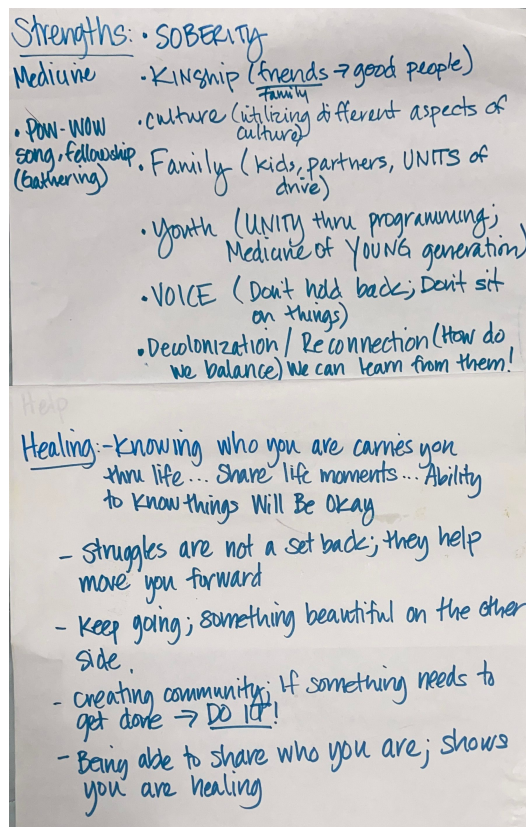 Strengths: • SOBERITY
Medicine
• POW-WOW
song, fellowship
(Gathering)
• KINSHIP (friends → good people)
family
• culture (utilizing different aspects of
culture)
• Family (kids, partners, UNITS of
drive)
• Youth (UNITY thru programming;
Medicine of YOUNG generation)
• VOICE (Don't hold back; Don't sit
on things)
• Decolonization / Reconnection (How do
we balance) We can learn from them!
Help
Healing: - Knowing who you are carries you
thru life... Share life moments... Ability
to know things Will Be Okay
- Struggles are not a set back; they help
move you forward
- Keep going; something beautiful on the other
side.
- creating community; If something needs to
get done → DO IT!
- Being able to share who you are; shows
you are healing